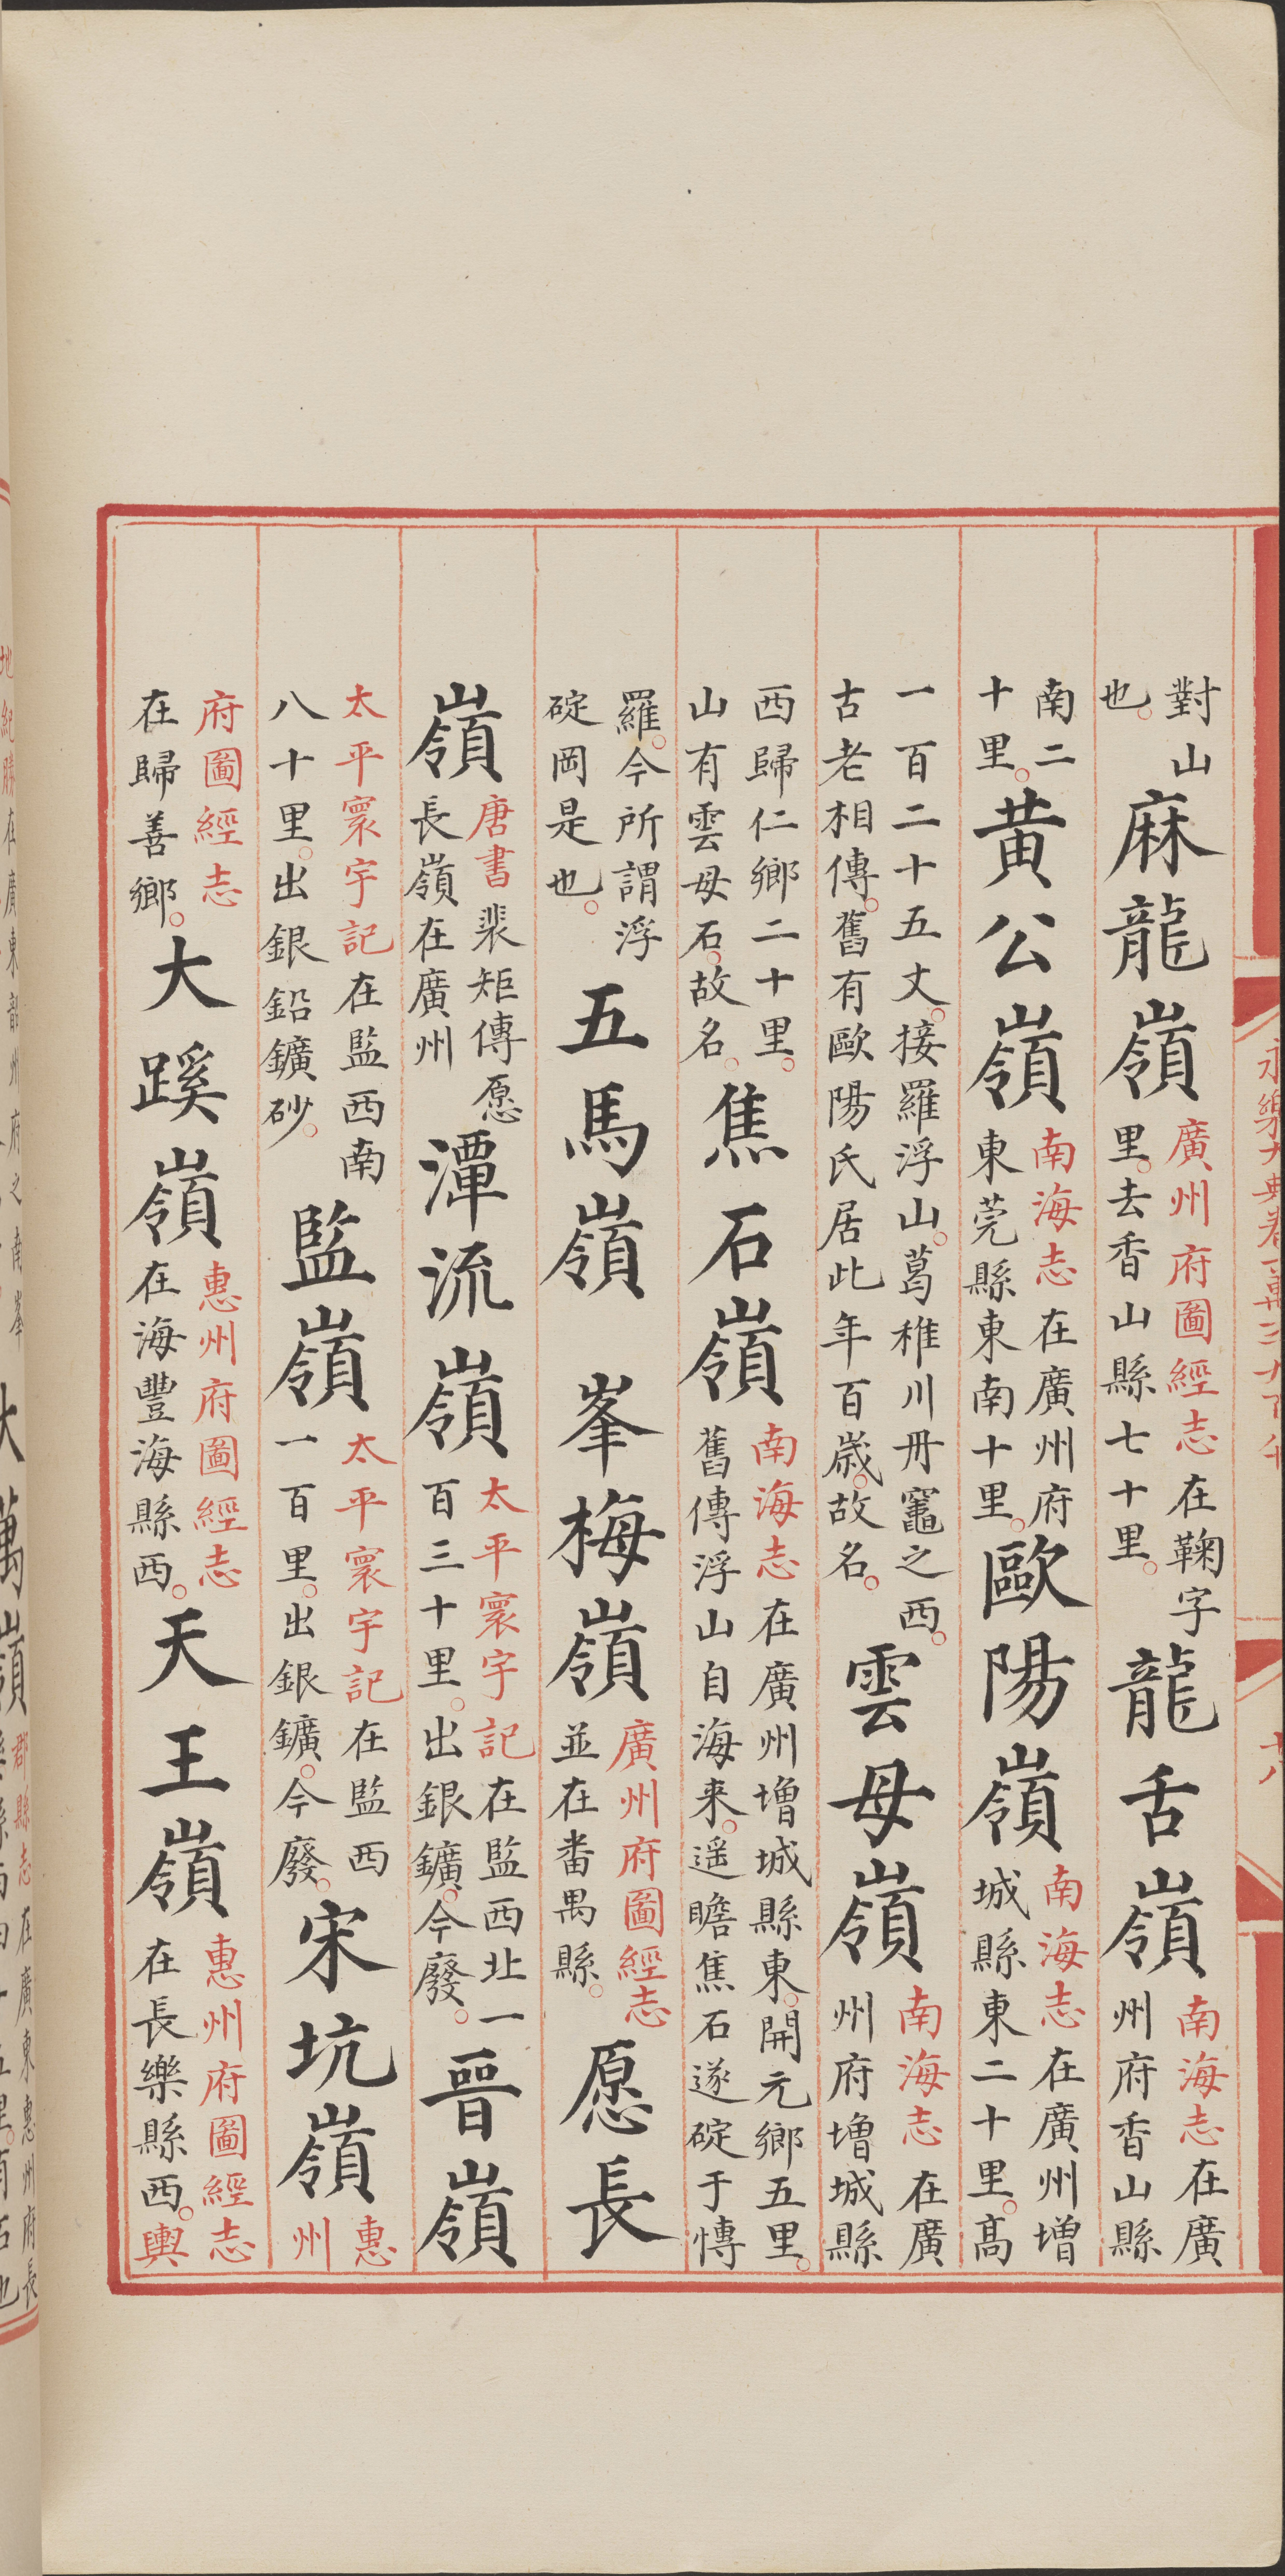 對山也。麻龍嶺廣州府圖經志在鞠字里。去香山縣七十里。龍舌嶺南海志在廣州府香山縣
南二十里。黄公嶺南海志在廣州府東莞縣東南十里。歐陽嶺南海志在廣州增城縣東二十里。髙
一百二十五丈。接羅浮山。葛稚川丹竈之西。古老相傳。舊有歐陽氏居此年百歲。故名。雲母嶺南海志在廣州府増城縣
西歸仁鄉二十里。山有雲母石。故名。焦石嶺南海志在廣州増城縣東。開元鄉五里。舊傳浮山自海来。遥瞻焦石遂碇于愽
羅。今所謂浮碇岡是也。五馬嶺 峯梅嶺廣州府圖經志並在番禺縣。愿長
嶺唐書裴矩傳愿長嶺在廣州潭流嶺太平寰宇記在監西北一百三十里。出銀鑛。今廢。晉嶺
太平寰宇記在監西南八十里。出銀鉛鑛砂。監嶺太平寰宇記在監西一百里。出銀鑛。今廢。宋坑嶺惠州
府圖經志在歸善鄉。大蹊嶺惠州府圖經志在海豐海縣西。天王嶺惠州府圖經志在長樂縣西。輿